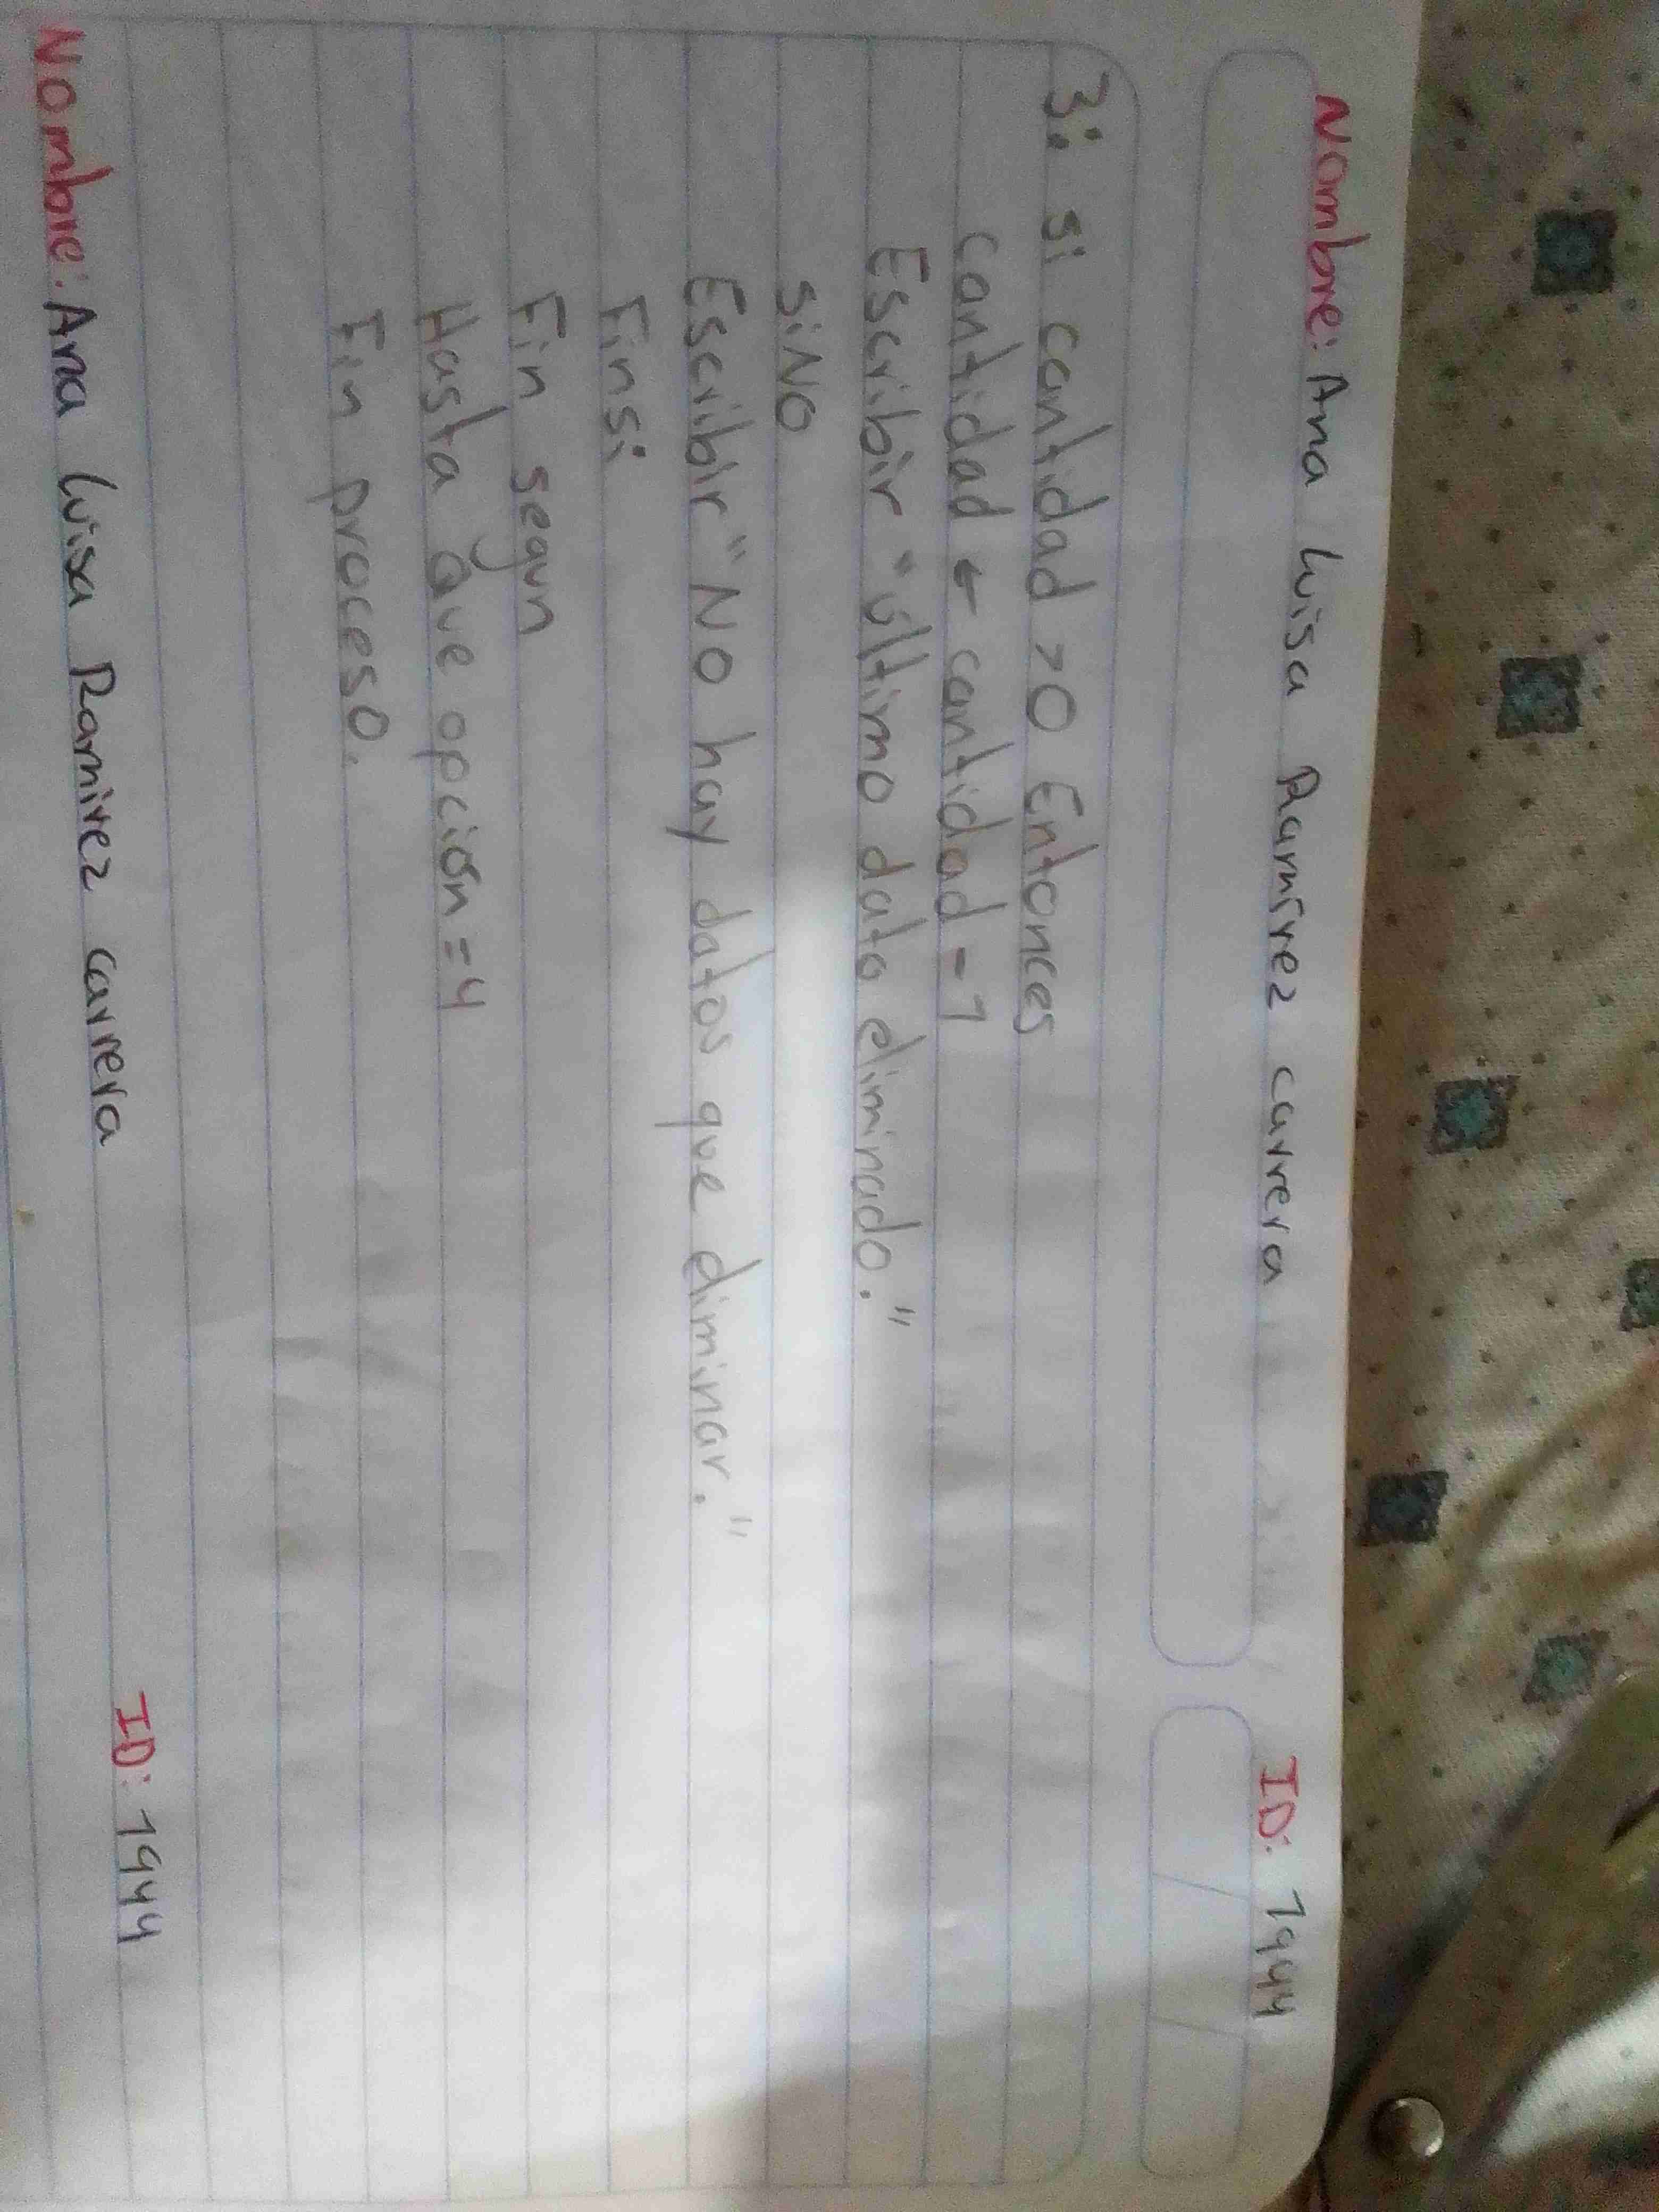 Nombre: Ana Luisa Ramírez carrera ID: 1944
3: si cantidad >0 Entonces
cantidad ← cantidad -1
Escribir "último dato eliminado."
siNo
Escribir "No hay datos que eliminar."
Finsi
Fin segun
Hasta Que opción = 4
Fin proceso.
Nombre: Ana Luisa Ramirez carrera ID: 1944